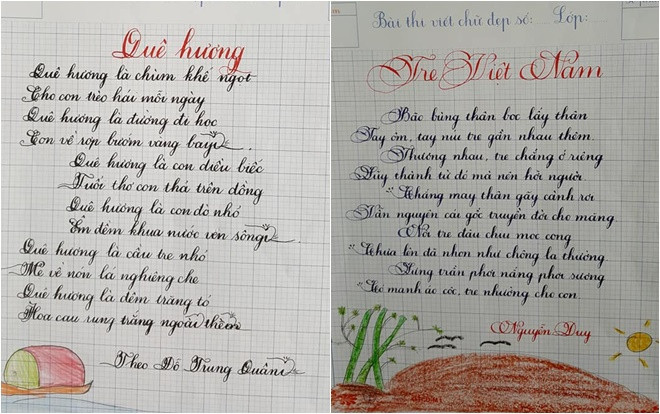 Quê hương
Quê hương là chùm khế ngọt
Cho con trèo hái mỗi ngày
Quê hương là đường đi học
Con về rợp bướm vàng bay
Quê hương là con diều biếc
Tuổi thơ con thả trên đồng
Quê hương là con đò nhỏ
Êm đềm khua nước ven sông
Quê hương là cầu tre nhỏ
Mẹ về nón lá nghiêng che
Quê hương là đêm trăng tỏ
Hoa cau rụng trắng ngoài thềm
Theo Đỗ Trung Quân
Bài thi viết chữ đẹp số: Lớp:
Tre Việt Nam
Bão bùng thân bọc lấy thân
Tay ôm, tay níu tre gần nhau thêm.
Thương nhau, tre chẳng ở riêng
Lũy thành từ đó mà nên hỡi người.
Chẳng may thân gãy cành rơi
Vẫn nguyên cái gốc truyền đời cho măng.
Nòi tre đâu chịu mọc cong
Chưa lên đã nhọn như chông lạ thường.
Lưng trần phơi nắng phơi sương
Có manh áo cộc, tre nhường cho con.
Nguyễn Duy